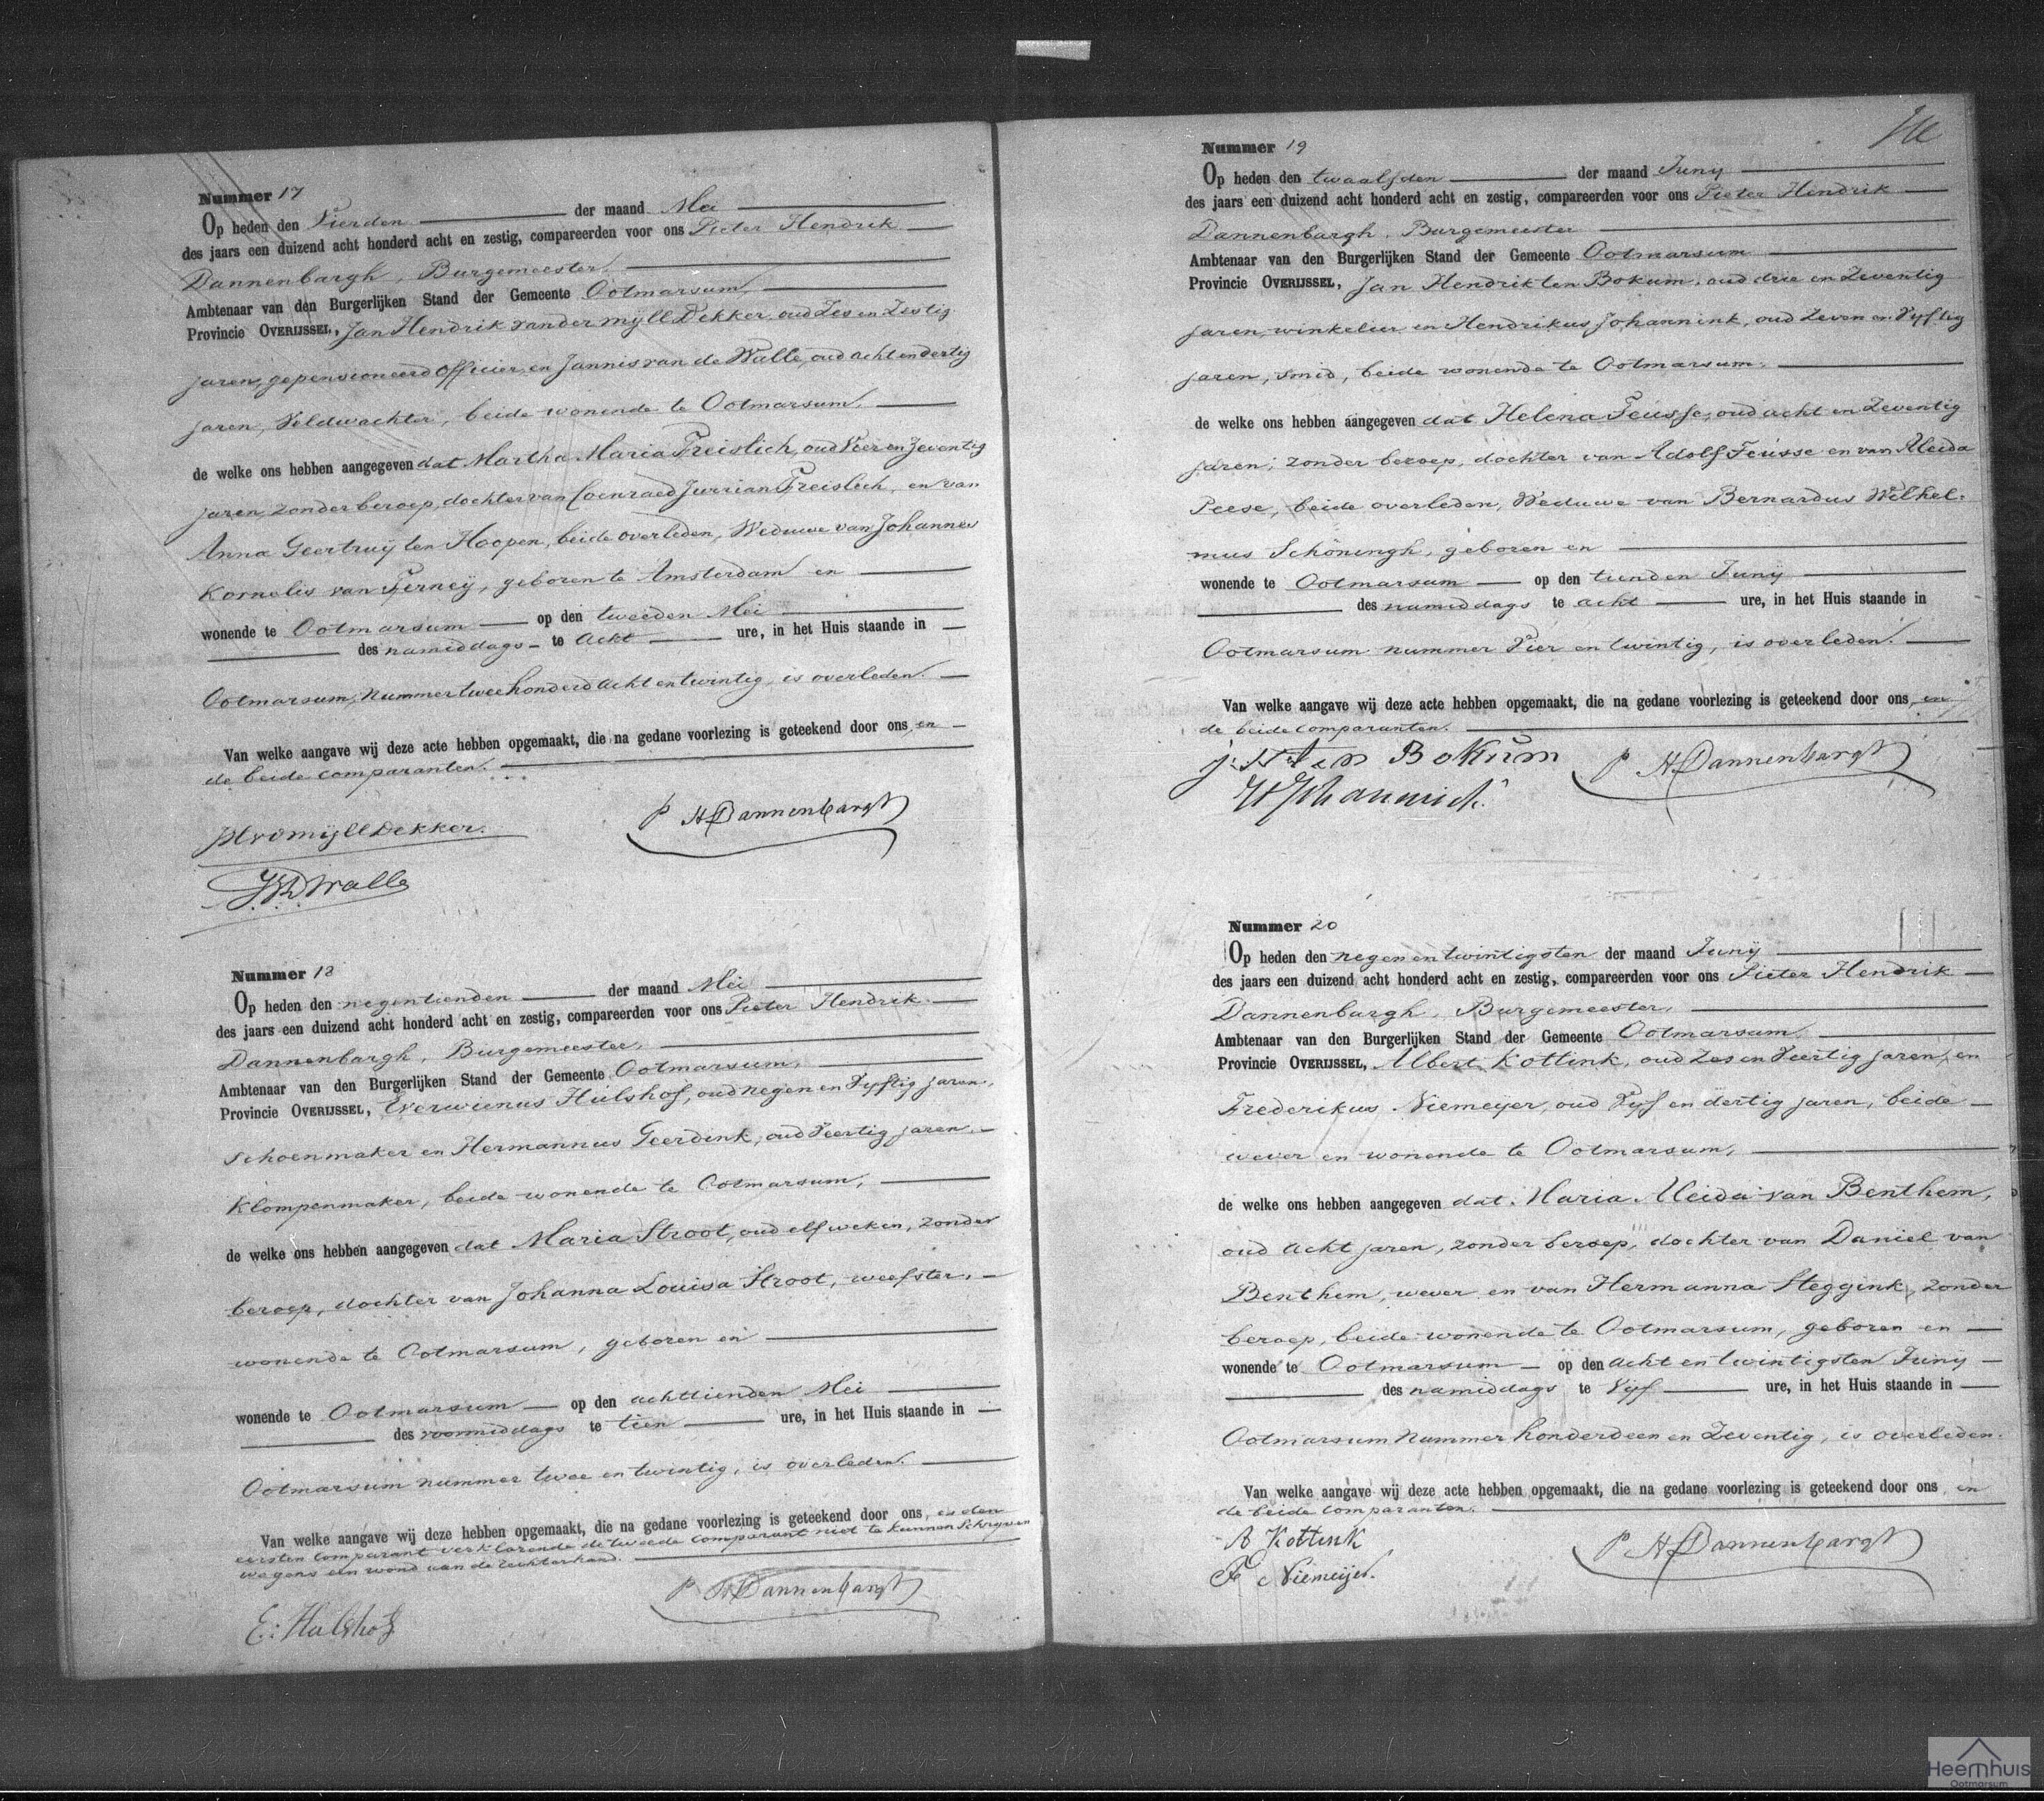 Nummer 17
Op heden den Vierden der maand Mei
des jaars een duizend acht honderd acht en zestig, compareerden voor ons Pieter Hendrik
Dannenbargh, Burgemeester,
Ambtenaar van den Burgerlijken Stand der Gemeente Ootmarsum,
Provincie OVERIJSSEL, Jan Hendrik van der Mijll Dekker, oud Zes en Zestig
jaren, gepensioneerd Officier, en Jannis van de Walle, oud acht en dertig
jaren, Veldwachter, beide wonende te Ootmarsum,
de welke ons hebben aangegeven dat Martha Maria Freislich, oud Vier en Zeventig
jaren, zonder beroep, dochter van Coenraed Jurrian Freislich, en van
Anna Geertruij ten Hoopen, beide overleden, Weduwe van Johannes
Kornelis van Ferneij, geboren te Amsterdam en
wonende te Ootmarsum op den tweeden Mei
des namiddags te Acht ure, in het Huis staande in
Ootmarsum, Nummer twee honderd acht en twintig, is overleden.
Van welke aangave wij deze acte hebben opgemaakt, die na gedane voorlezing is geteekend door ons, en
de beide comparanten.
JHvdMijllDekker.
P H Dannenbargh
J.v.D.Walle
Nummer 18
Op heden den negentienden der maand Mei
des jaars een duizend acht honderd acht en zestig, compareerden voor ons Pieter Hendrik
Dannenbargh, Burgemeester,
Ambtenaar van den Burgerlijken Stand der Gemeente Ootmarsum,
Provincie OVERIJSSEL, Everwienus Hulshof, oud negen en Vyftig jaren,
Schoenmaker en Hermannus Geerdink, oud Veertig jaren,
Klompenmaker, beide wonende te Ootmarsum,
de welke ons hebben aangegeven dat Maria Stroot, oud elf weken, zonder
beroep, dochter van Johanna Louisa Stroot, weefster,
wonende te Ootmarsum, geboren en
wonende te Ootmarsum op den achttienden Mei
des voormiddags te tien ure, in het Huis staande in
Ootmarsum nummer twee en twintig, is overleden.
Van welke aangave wij deze hebben opgemaakt, die na gedane voorlezing is geteekend door ons, en den
eersten comparant verklarende de tweede comparant niet te kunnen Schryven
wegens een wond aan de rechterhand.
P H Dannenbargh
E: Hulshof
Nummer 19
Op heden den twaalfden der maand Juny
des jaars een duizend acht honderd acht en zestig, compareerden voor ons Pieter Hendrik
Dannenbargh, Burgemeester
Ambtenaar van den Burgerlijken Stand der Gemeente Ootmarsum
Provincie OVERIJSSEL, Jan Hendrik ten Bokum, oud drie en Zeventig
jaren, winkelier en Hendrikus Johannink, oud Zeven en Vyftig
jaren, Smid, beide wonende te Ootmarsum,
de welke ons hebben aangegeven dat Helena Feusse, oud acht en Zeventig
jaren, zonder beroep, dochter van Adolf Feusse en van Aleida
Peese, beide overleden, Weduwe van Bernardus Wilhel-
mus Schöningh, geboren en
wonende te Ootmarsum op den tienden Juny
des namiddags te acht ure, in het Huis staande in
Ootmarsum nummer Vier en twintig, is overleden.
Van welke aangave wij deze acte hebben opgemaakt, die na gedane voorlezing is geteekend door ons, en
de beide comparanten.
j: H ten Bokum
P H Dannenbargh
H Johannink
Nummer 20
Op heden den negen en twintigsten der maand Juny
des jaars een duizend acht honderd acht en zestig, compareerden voor ons Pieter Hendrik
Dannenburgh, Burgemeester,
Ambtenaar van den Burgerlijken Stand der Gemeente Ootmarsum
Provincie OVERIJSSEL, Albert Kottink, oud Zes en Veertig jaren, en
Frederikus Niemeijer, oud Vyf en dertig jaren, beide
wever en wonende te Ootmarsum,
de welke ons hebben aangegeven dat Maria Aleida van Benthem,
oud acht jaren, zonder beroep, dochter van Daniel van
Benthem, wever en van Hermanna Steggink, zonder
beroep, beide wonende te Ootmarsum, geboren en
wonende te Ootmarsum op den acht en twintigsten Juny
des namiddags te Vyf ure, in het Huis staande in
Ootmarsum Nummer honderd een en Zeventig, is overleden.
Van welke aangave wij deze acte hebben opgemaakt, die na gedane voorlezing is geteekend door ons, en
de beide comparanten.
A Kottink
P H Dannenbargh
F Niemeijer.
Heemhuis
Ootmarsum